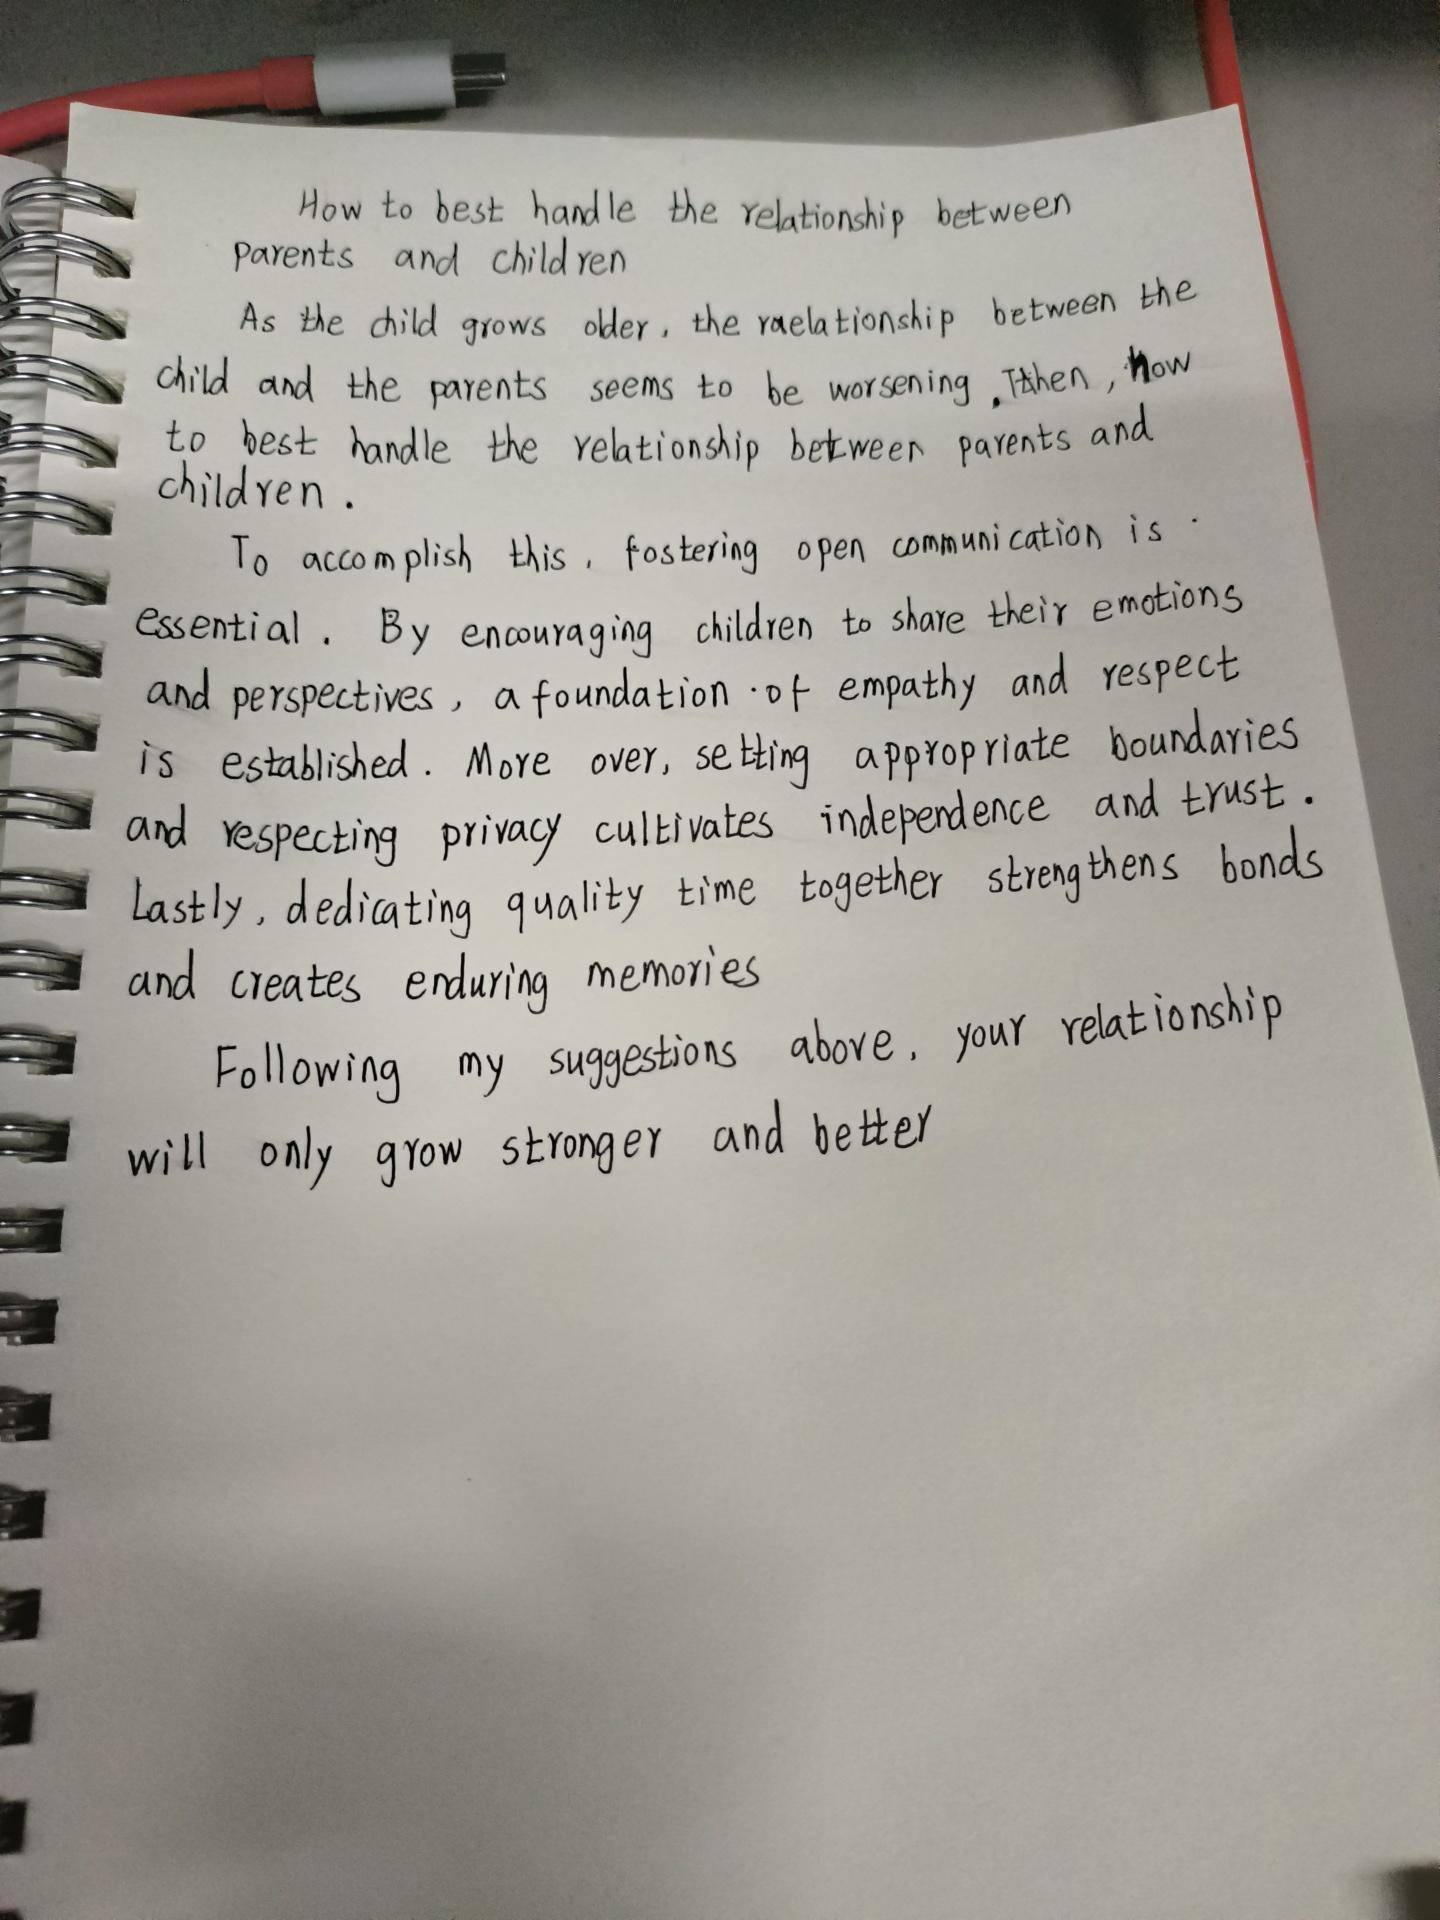 How to best handle the relationship between
parents and children
As the child grows older, the raelationship between the
child and the parents seems to be worsening. Then, how
to best handle the relationship between parents and
children.
To accomplish this, fostering open communication is
essential. By encouraging children to share their emotions
and perspectives, a foundation of empathy and respect
is established. More over, setting appropriate boundaries
and respecting privacy cultivates independence and trust.
Lastly, dedicating quality time together strengthens bonds
and creates enduring memories
Following my suggestions above, your relationship
will only grow stronger and better